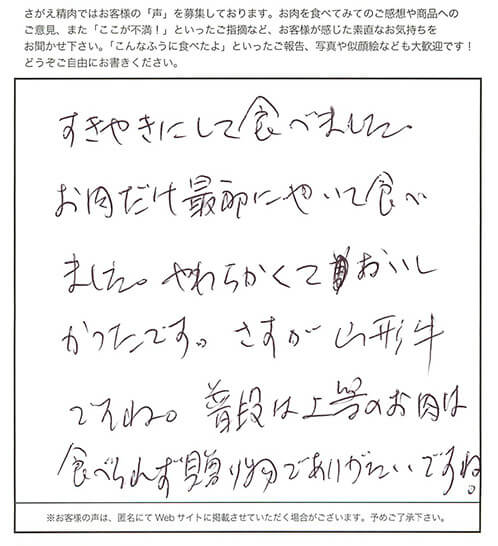 さがえ精肉ではお客様の「声」を募集しております。お肉を食べてみてのご感想や商品への
ご意見、また「ここが不満！」といったご指摘など、お客様が感じた素直なお気持ちを
お聞かせ下さい。「こんなふうに食べたよ」といったご報告、写真や似顔絵なども大歓迎です！
どうぞご自由にお書きください。
すきやきにして食べました。
お肉だけ最初にやいて食べ
ました。やわらかくておいし
かったです。さすが山形牛
ですね。普段は上等のお肉は
食べられず贈り物でありがたいですね。
※お客様の声は、匿名にてWebサイトに掲載させていただく場合がございます。予めご了承下さい。